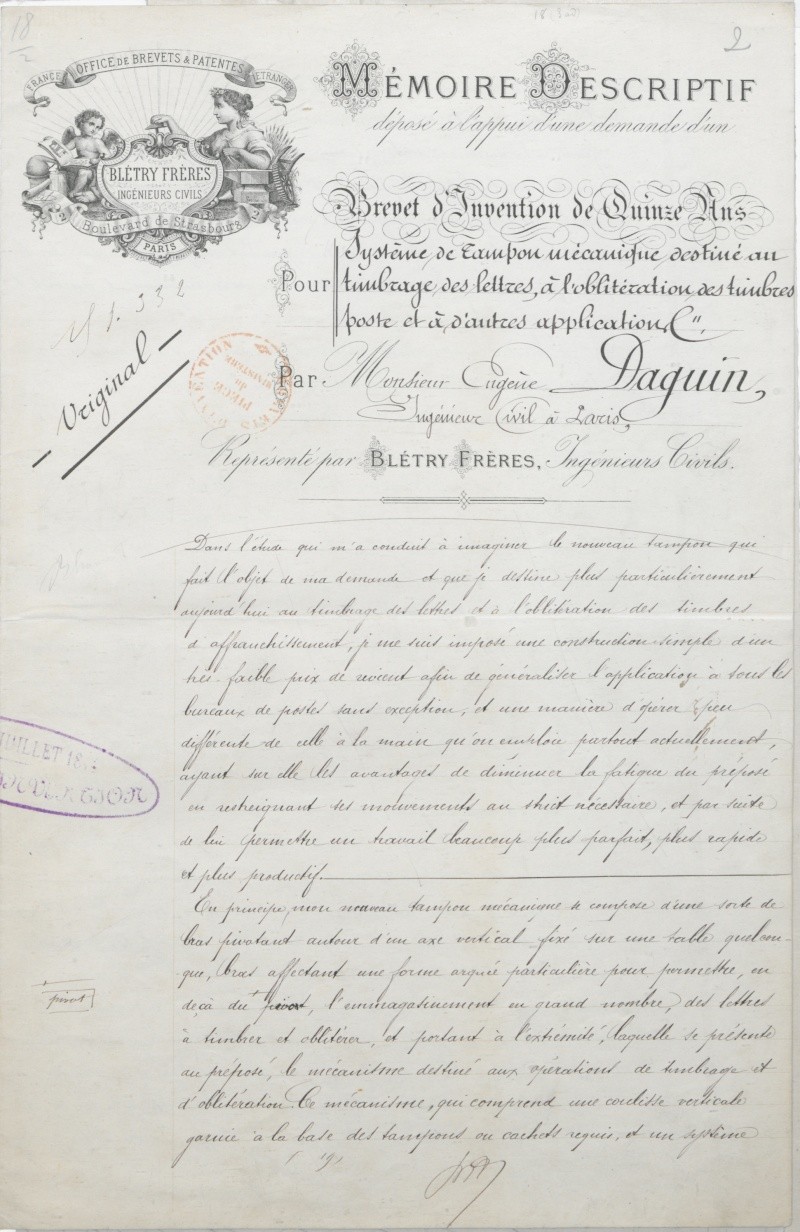 18
2
18.3.21
2
FRANCE
OFFICE DE BREVETS & PATENTES
ETRANGER
BLÉTRY FRÈRES
INGÉNIEURS CIVILS
2 Boulevard de Strasbourg 2
PARIS
MÉMOIRE DESCRIPTIF
déposé à l'appui d'une demande d'un
Brevet d'Invention de Quinze Ans
Pour
Système de tampon mécanique destiné au
timbrage des lettres, à l'oblitération des timbres
poste et à d'autres applications
332
Original
Par Monsieur Eugène Daguin,
Ingénieur Civil à Paris,
Représenté par BLÉTRY FRÈRES, Ingénieurs Civils.
Dans l'étude qui m'a conduit à imaginer le nouveau tampon qui
fait l'objet de ma demande et que je destine plus particulièrement
aujourd'hui au timbrage des lettres et à l'oblitération des timbres
d'affranchissement, je me suis imposé une construction simple d'un
très-faible prix de revient afin de généraliser l'application à tous les
bureaux de postes sans exception, et une manière d'opérer peu
différente de celle à la main qu'on emploie partout actuellement,
ayant sur elle les avantages de diminuer la fatigue du préposé
en restreignant ses mouvements au strict nécessaire, et par suite
de lui permettre un travail beaucoup plus parfait, plus rapide
et plus productif.
JUILLET 18
En principe, mon nouveau tampon mécanique se compose d'une sorte de
bras pivotant autour d'un axe vertical fixé sur une table quelcon-
que, bras affectant une forme arquée particulière pour permettre, en
deçà du pivot, l'emmagasinement en grand nombre, des lettres
pivot
à timbrer et oblitérer, et portant à l'extrémité, laquelle se présente
au préposé, le mécanisme destiné aux opérations de timbrage et
d'oblitération. Ce mécanisme, qui comprend une coulisse verticale
garnie à la base des tampons ou cachets requis, et un système